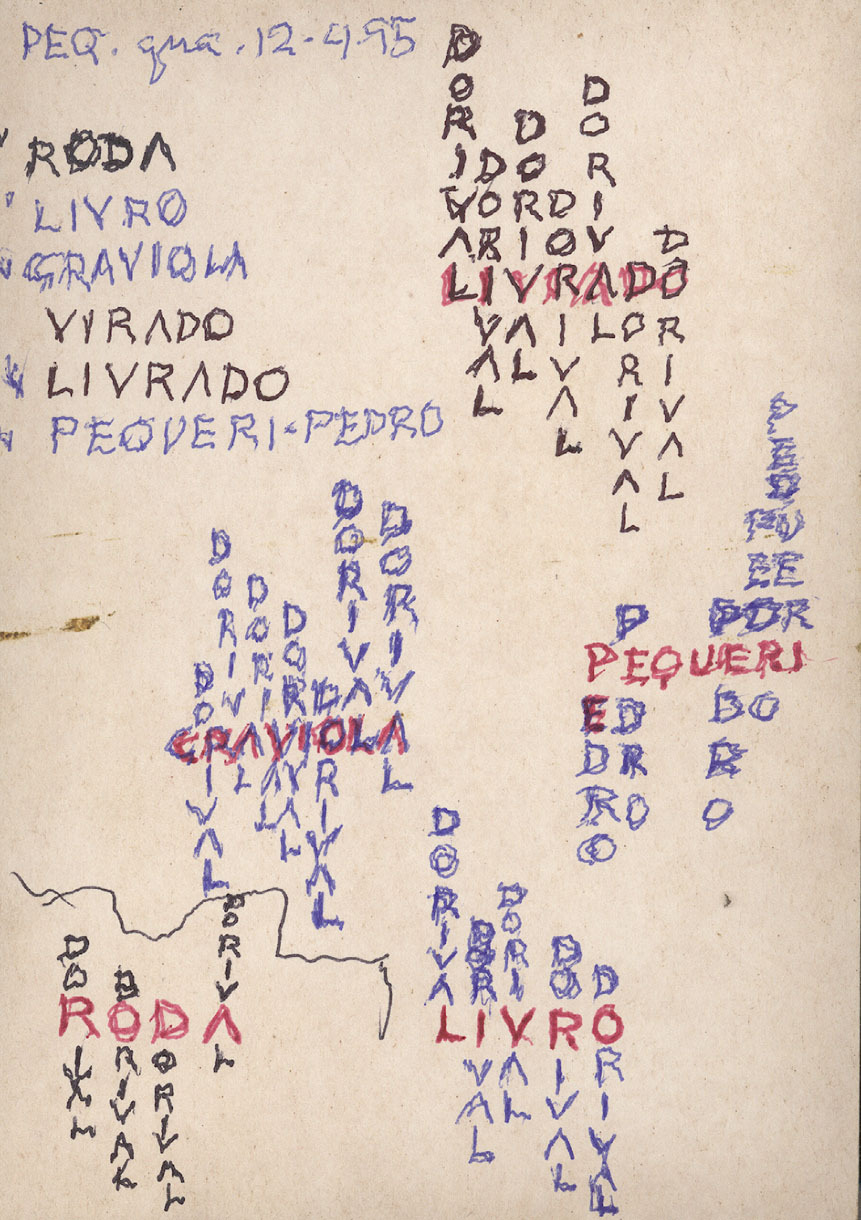 PEQ. qua. 12-4-95
RODA
LIVRO
GRAVIOLA
VIRADO
LIVRADO
PEQUERI-PEDRO
LIVRADO
DORIVAL
DORIVAL
DORIVAL
DORIVAL
DORIVAL
DORIVAL
DORIVAL
GRAVIOLA
DORIVAL
DORIVAL
DORIVAL
DORIVAL
DORIVAL
DORIVAL
DORIVAL
PEQUERI
PEDRO
PEDRO
PEDRO
PEDRO
PEQUERI
RODA
DORIVAL
DORIVAL
DORIVAL
DORIVAL
LIVRO
DORIVAL
DORIVAL
DORIVAL
DORIVAL
DORIVAL